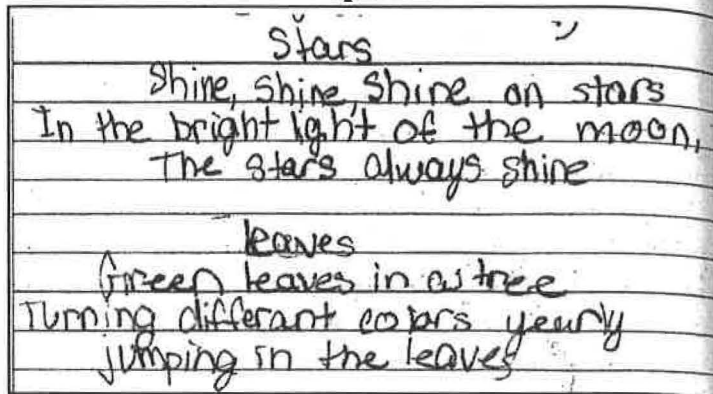 Stars
Shine, Shine, Shine on stars
In the bright light of the moon,
The stars always shine
leaves
Green leaves in a tree
Turning differant colors yearly
jumping in the leaves